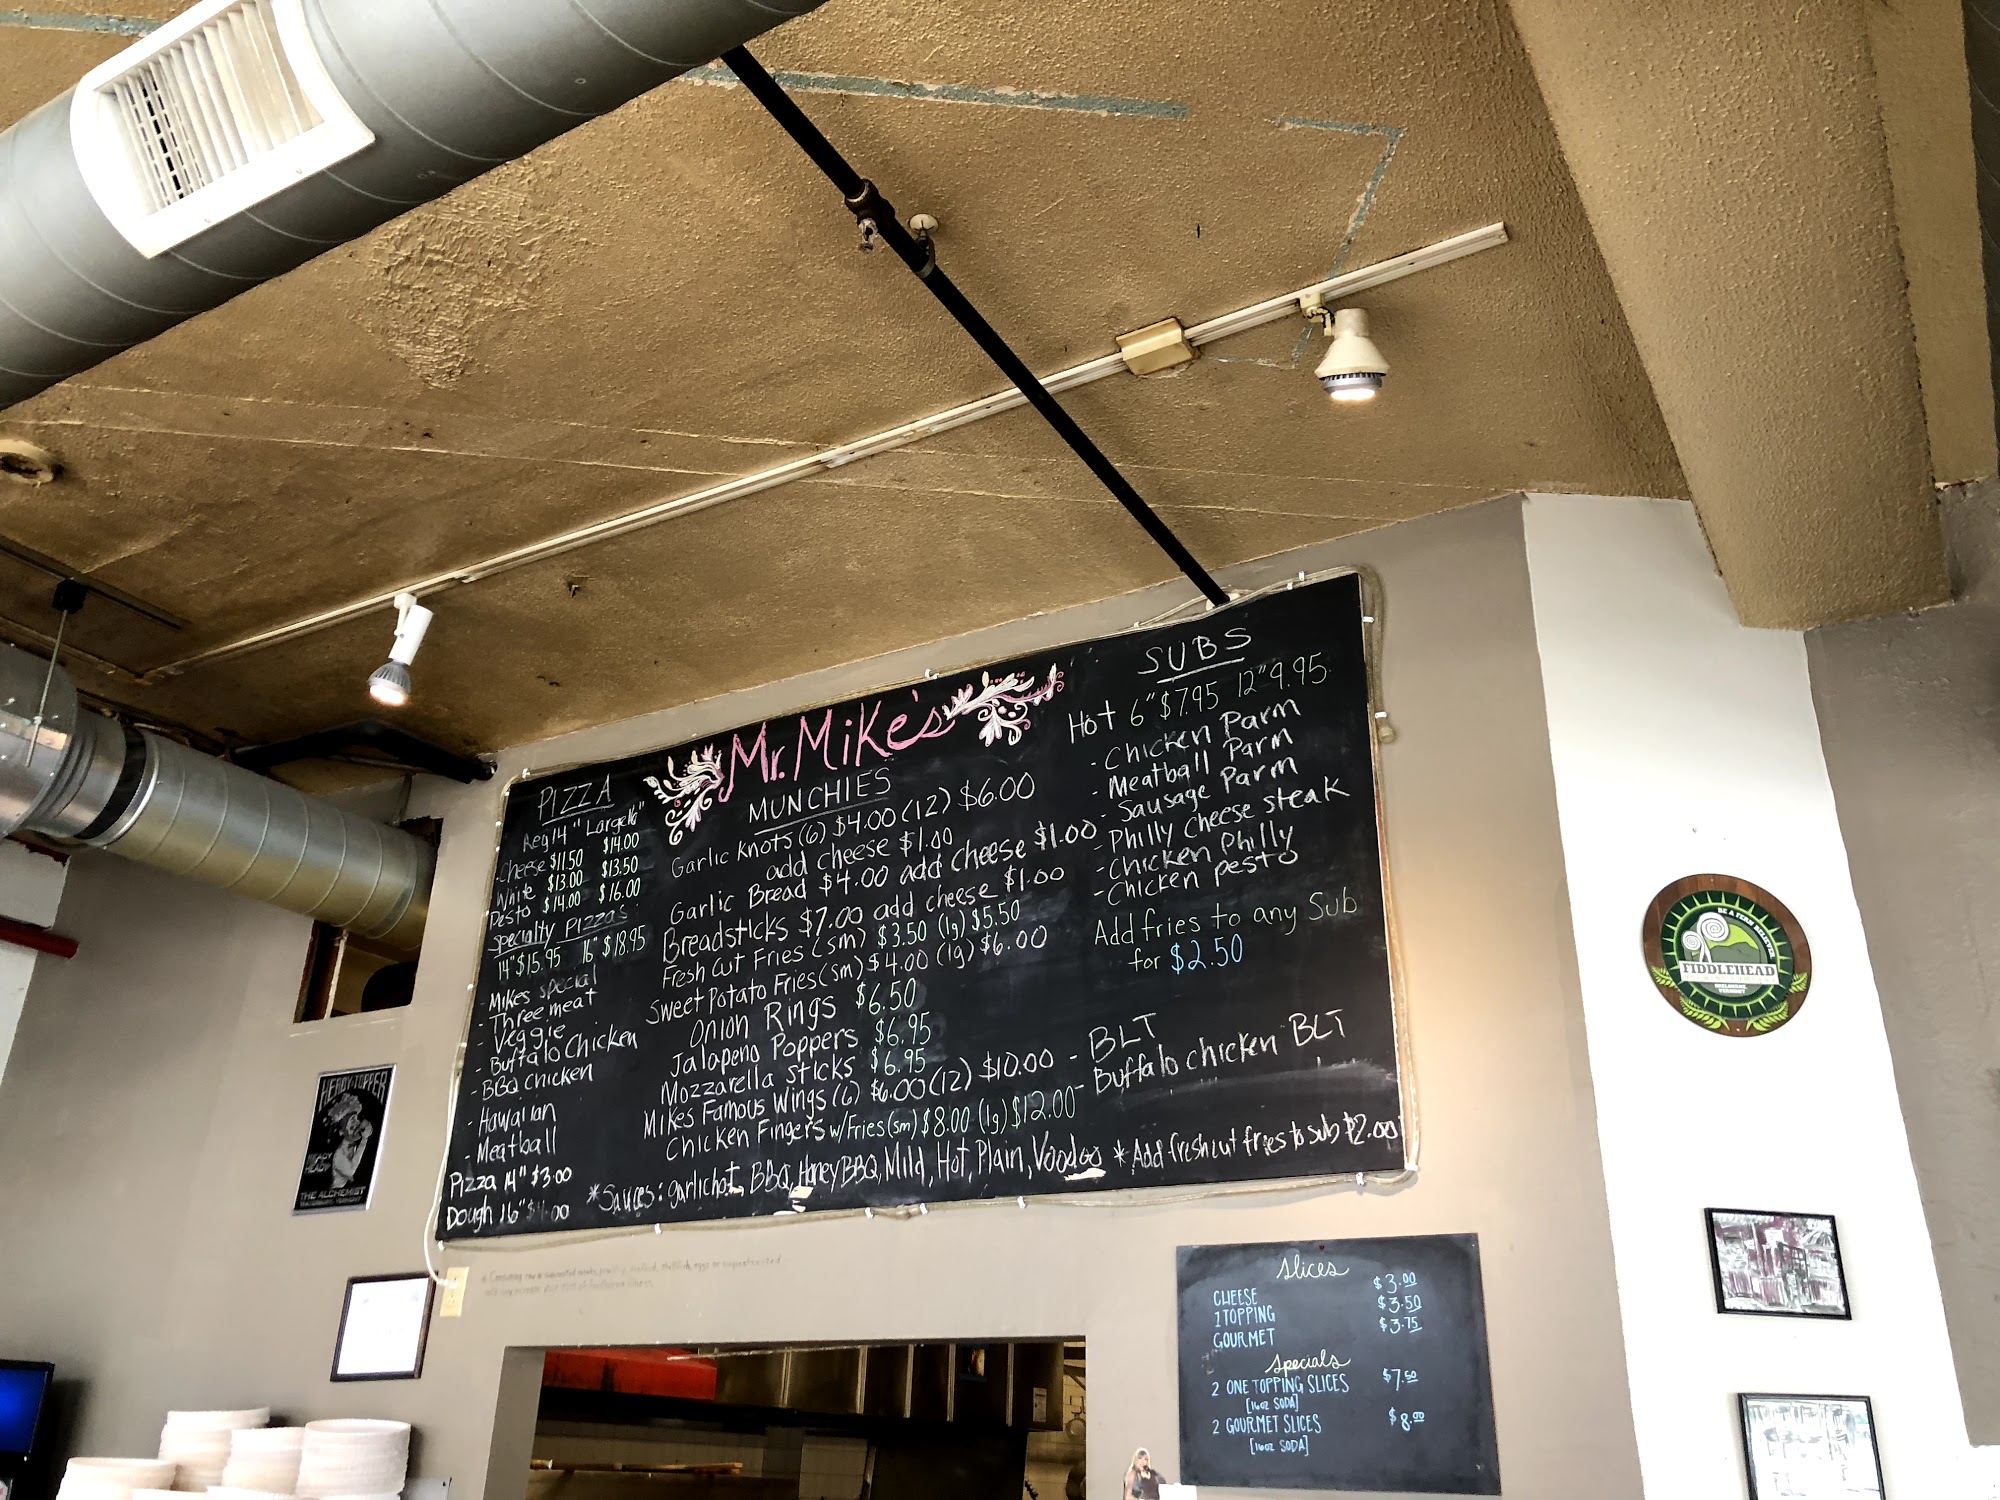 Mr. Mike's
PIZZA
Reg 14" Large 16"
Cheese $11.50 $14.00
White $13.00 $13.50
Pesto $14.00 $16.00
Specialty Pizzas
14" $15.95 16" $18.95
- Mikes special
- Three meat
- Veggie
- Buffalo Chicken
- BBQ chicken
- Hawaiian
- Meatball
Pizza 14" $3.00
Dough 16" $4.00
MUNCHIES
Garlic Knots (6) $4.00 (12) $6.00
add cheese $1.00
Garlic Bread $4.00 add cheese $1.00
Breadsticks $7.00 add cheese $1.00
Fresh Cut Fries (sm) $3.50 (lg) $5.50
Sweet Potato Fries (sm) $4.00 (lg) $6.00
Onion Rings $6.50
Jalapeno Poppers $6.95
Mozzarella Sticks $6.95
Mikes Famous Wings (6) $6.00 (12) $10.00
Chicken Fingers w/Fries (sm) $8.00 (lg) $12.00
*Sauces: garlichot, BBQ, Honey BBQ, Mild, Hot, Plain, Voodoo *Add freshcut fries to sub $2.00
SUBS
Hot 6" $7.95 12" 9.95
- Chicken Parm
- Meatball Parm
- Sausage Parm
- Philly Cheese steak
- Chicken Philly
- Chicken pesto
Add fries to any Sub
for $2.50
- BLT
- Buffalo chicken BLT
BE A FERN BELIEVER
FIDDLEHEAD
SHELBURNE,
VERMONT
HEADY TOPPER
THE ALCHEMIST
Slices
CHEESE $3.00
1 TOPPING $3.50
GOURMET $3.75
Specials
2 ONE TOPPING SLICES $7.50
[16oz SODA]
2 GOURMET SLICES $8.00
[16oz SODA]